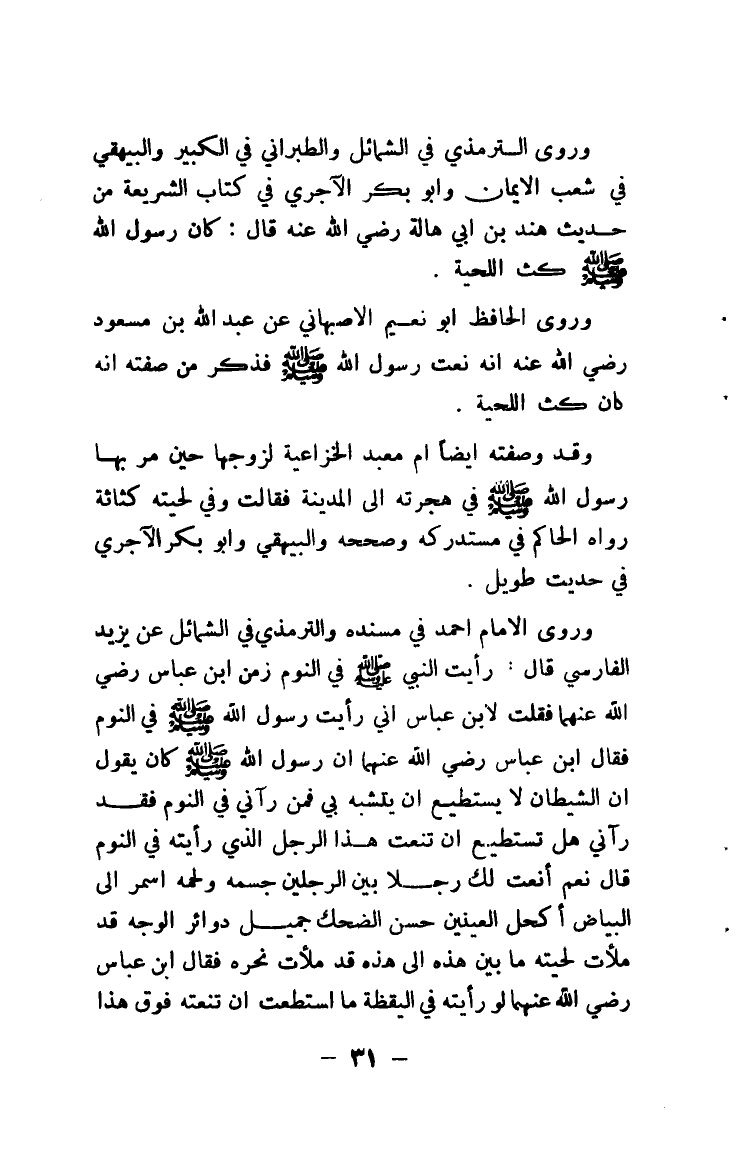 وروى الترمذي في الشمائل والطبراني في الكبير والبيهقي
في شعب الايمان وابو بكر الآجري في كتاب الشريعة من
حديث هند بن ابي هالة رضي الله عنه قال : كان رسول الله
ﷺ كث اللحية .
وروى الحافظ ابو نعيم الاصبهاني عن عبد الله بن مسعود
رضي الله عنه انه نعت رسول الله ﷺ فذكر من صفته انه
كان كث اللحية .
وقد وصفته ايضاً ام معبد الخزاعية لزوجها حين مر بها
رسول الله ﷺ في هجرته الى المدينة فقالت وفي لحيته كثاثة
رواه الحاكم في مستدركه وصححه والبيهقي وابو بكر الآجري
في حديث طويل .
وروى الامام احمد في مسنده والترمذي في الشمائل عن يزيد
الفارسي قال : رأيت النبي ﷺ في النوم زمن ابن عباس رضي
الله عنهما فقلت لابن عباس اني رأيت رسول الله ﷺ في النوم
فقال ابن عباس رضي الله عنهما ان رسول الله ﷺ كان يقول
ان الشيطان لا يستطيع ان يتشبه بي فمن رآني في النوم فقد
رآني هل تستطيع ان تنعت هذا الرجل الذي رأيته في النوم
قال نعم أنعت لك رجلا بين الرجلين جسمه ولحمه اسمر الى
البياض أكحل العينين حسن الضحك جميل دوائر الوجه قد
ملأت لحيته ما بين هذه الى هذه قد ملأت نحره فقال ابن عباس
رضي الله عنهما لو رأيته في اليقظة ما استطعت ان تنعته فوق هذا
– ٣١ –